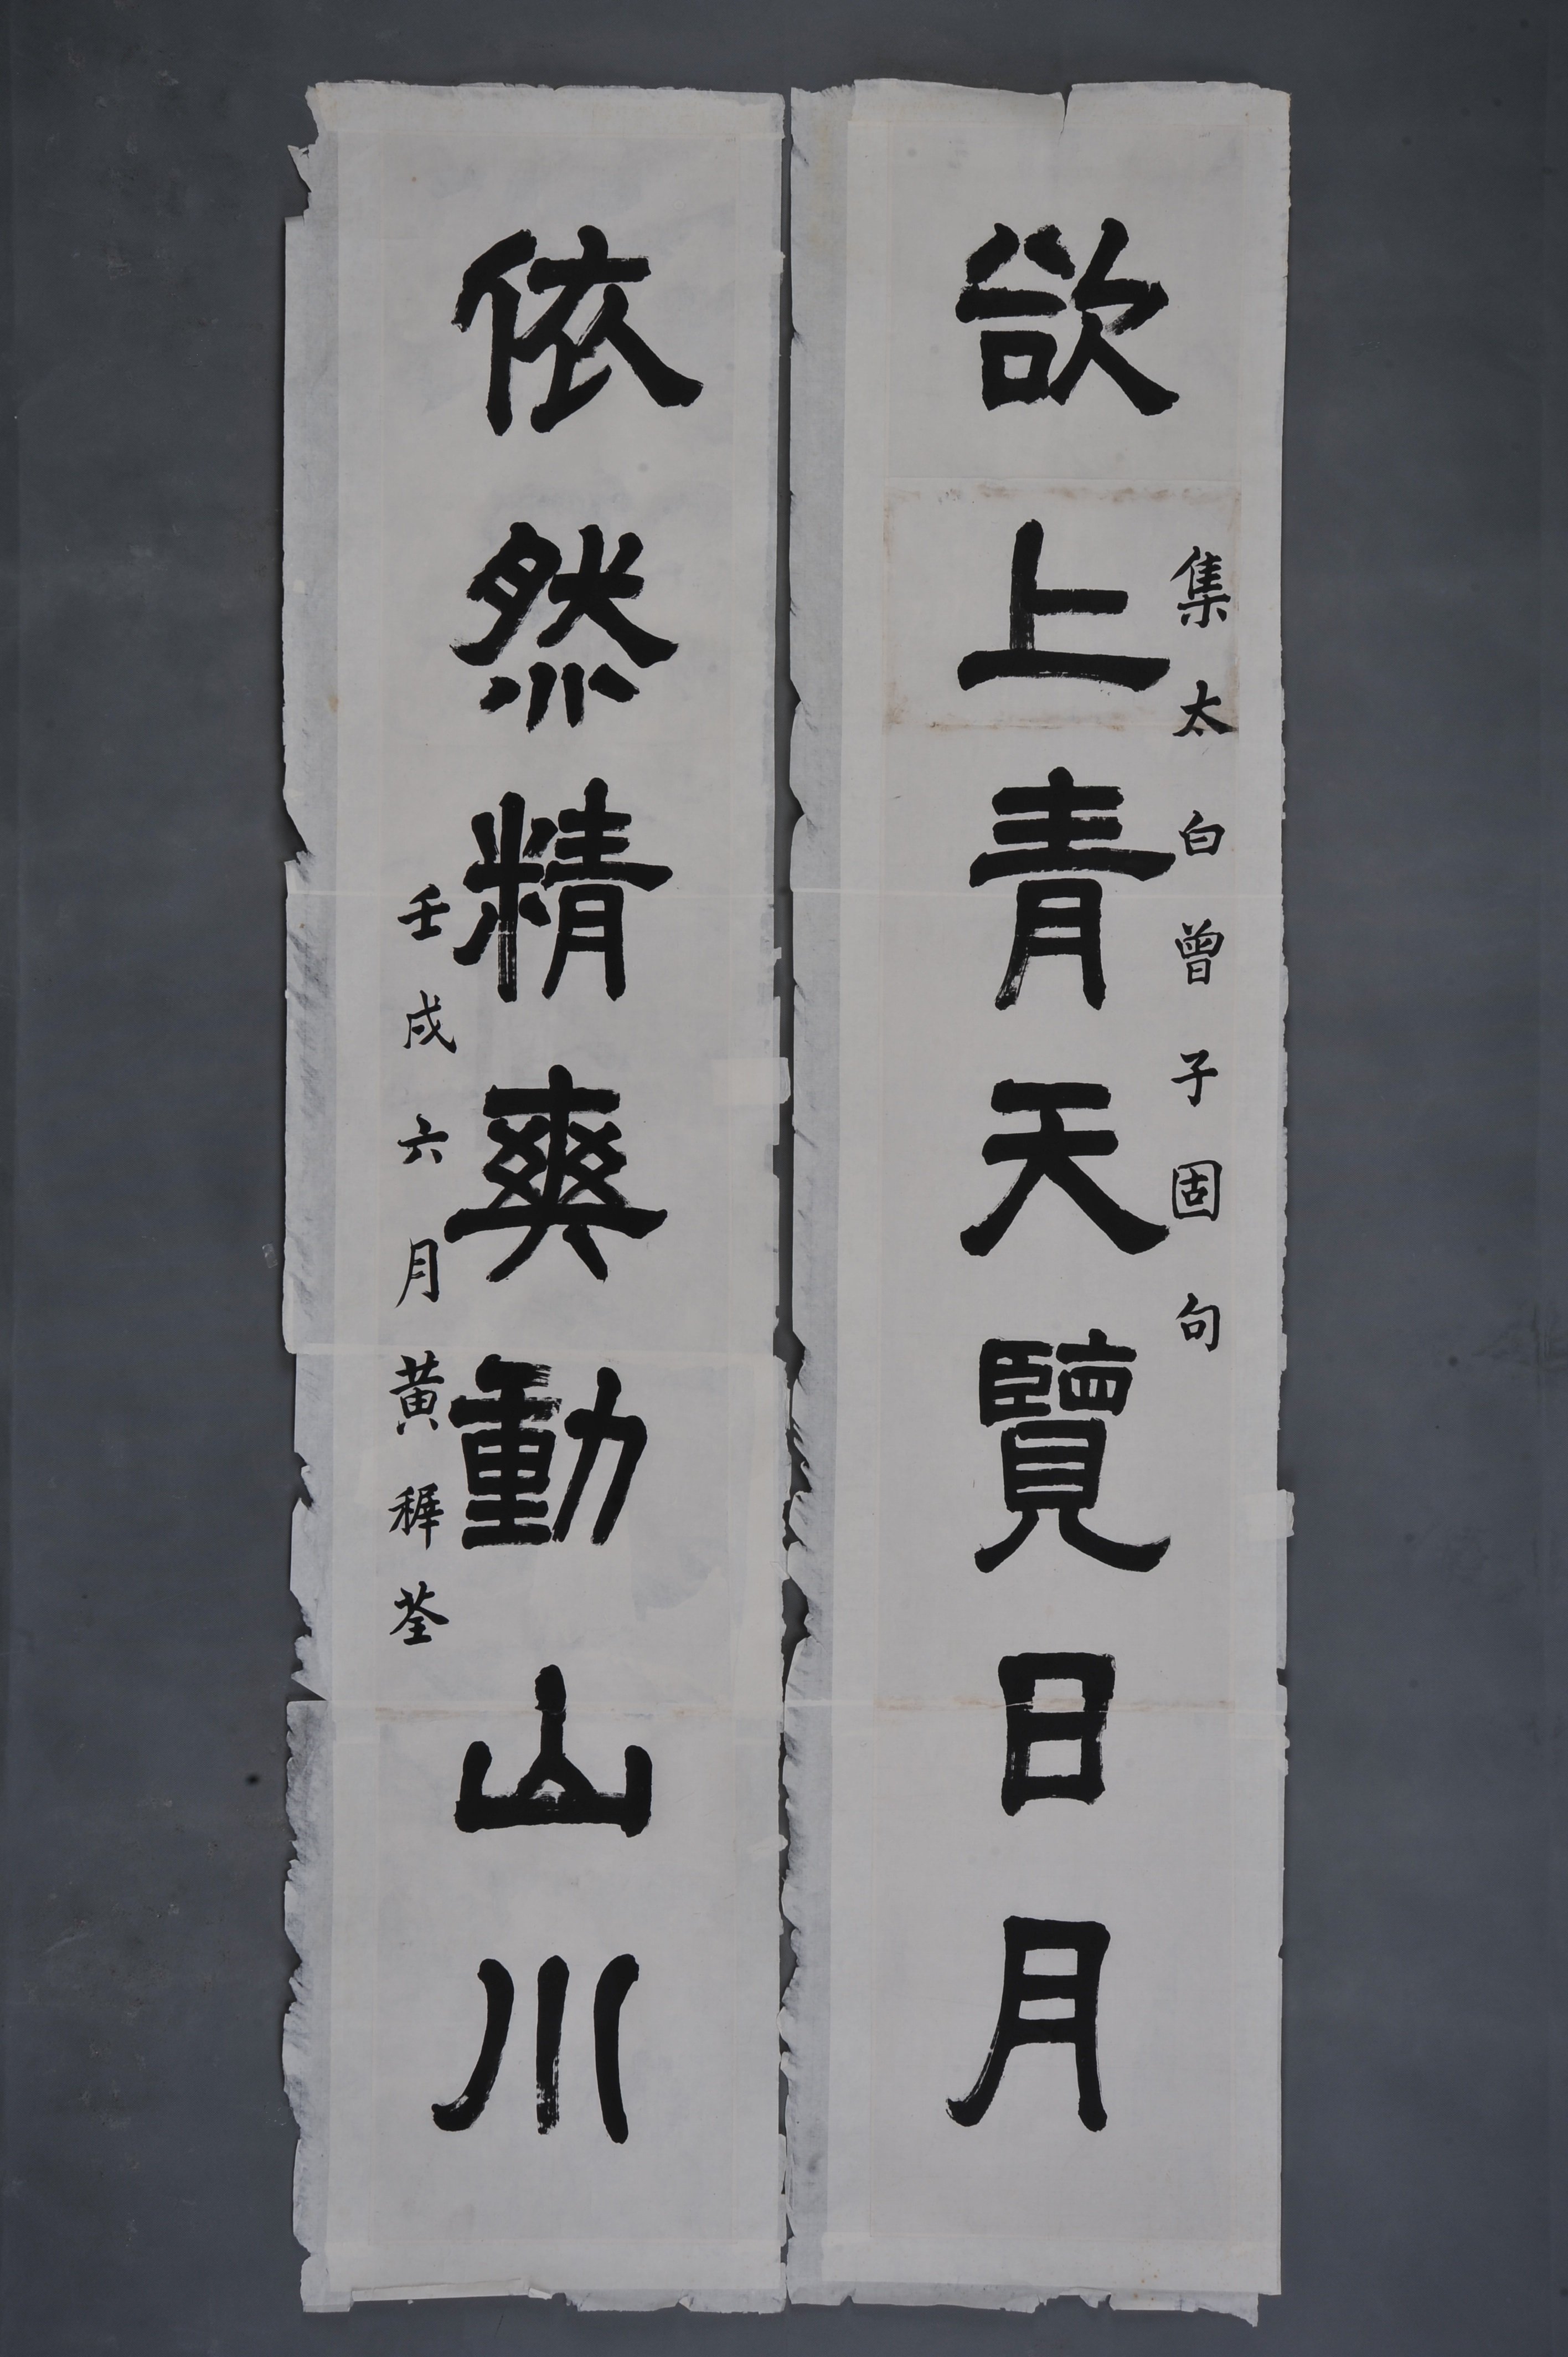 欲上青天覽日月
集太白曾子固句
依然精爽動山川
壬戌六月黃稺荃